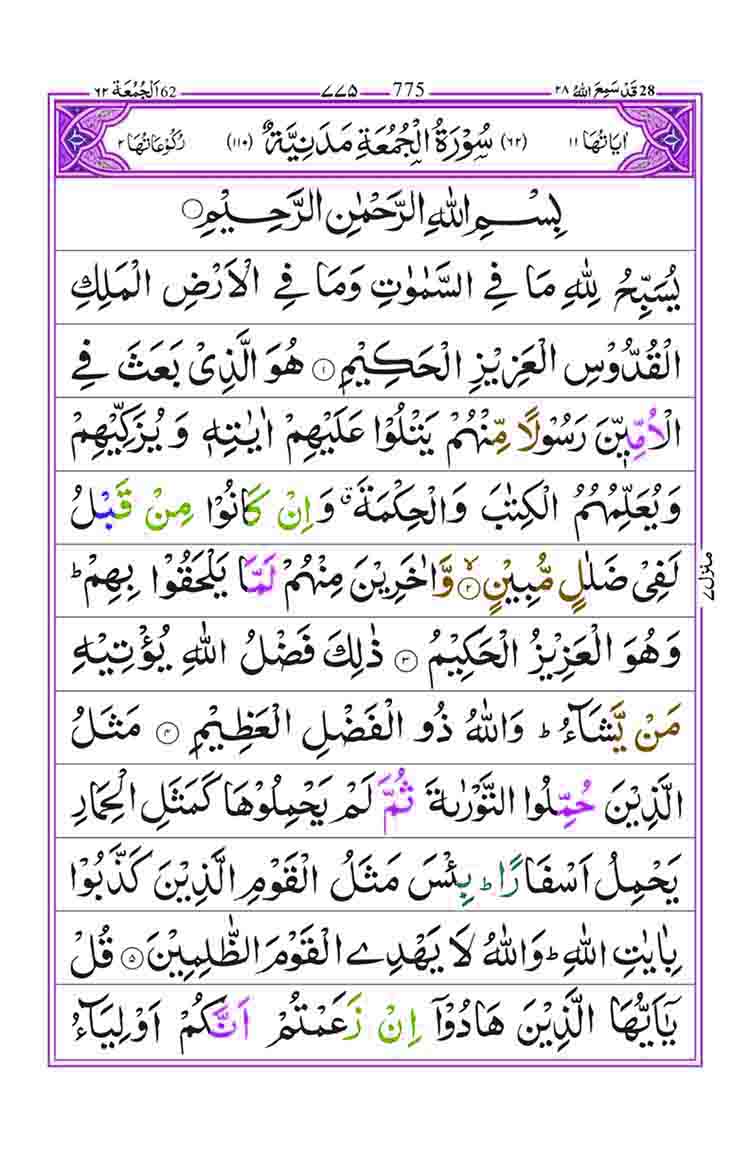 28 قَدْ سَمِعَ اللهُ ٢٨ 775 ٧٧٥ 62 اَلْجُمُعَة ٦٢
اٰيَاتُهَا ١١ (٦٢) سُوْرَةُ الْجُمُعَةِ مَدَنِيَّةٌ (١١٠) رُكُوْعَاتُهَا ٢
بِسْمِ اللهِ الرَّحْمٰنِ الرَّحِيْمِ
يُسَبِّحُ لِلّٰهِ مَا فِي السَّمٰوٰتِ وَمَا فِي الْاَرْضِ الْمَلِكِ
الْقُدُّوْسِ الْعَزِيْزِ الْحَكِيْمِ ١ هُوَ الَّذِيْ بَعَثَ فِي
الْاُمِّيّٖنَ رَسُوْلًا مِّنْهُمْ يَتْلُوْا عَلَيْهِمْ اٰيٰتِهٖ وَيُزَكِّيْهِمْ
وَيُعَلِّمُهُمُ الْكِتٰبَ وَالْحِكْمَةَ ۗ وَاِنْ كَانُوْا مِنْ قَبْلُ
لَفِيْ ضَلٰلٍ مُّبِيْنٍ ٢ۙ وَّاٰخَرِيْنَ مِنْهُمْ لَمَّا يَلْحَقُوْا بِهِمْ ؕ
وَهُوَ الْعَزِيْزُ الْحَكِيْمُ ٣ ذٰلِكَ فَضْلُ اللهِ يُؤْتِيْهِ
مَنْ يَّشَآءُ ؕ وَاللهُ ذُو الْفَضْلِ الْعَظِيْمِ ٤ مَثَلُ
الَّذِيْنَ حُمِّلُوا التَّوْرٰىةَ ثُمَّ لَمْ يَحْمِلُوْهَا كَمَثَلِ الْحِمَارِ
يَحْمِلُ اَسْفَارًا ؕ بِئْسَ مَثَلُ الْقَوْمِ الَّذِيْنَ كَذَّبُوْا
بِاٰيٰتِ اللهِ ؕ وَاللهُ لَا يَهْدِي الْقَوْمَ الظّٰلِمِيْنَ ٥ قُلْ
يٰۤاَيُّهَا الَّذِيْنَ هَادُوْۤا اِنْ زَعَمْتُمْ اَنَّكُمْ اَوْلِيَآءُ
منزل ٧